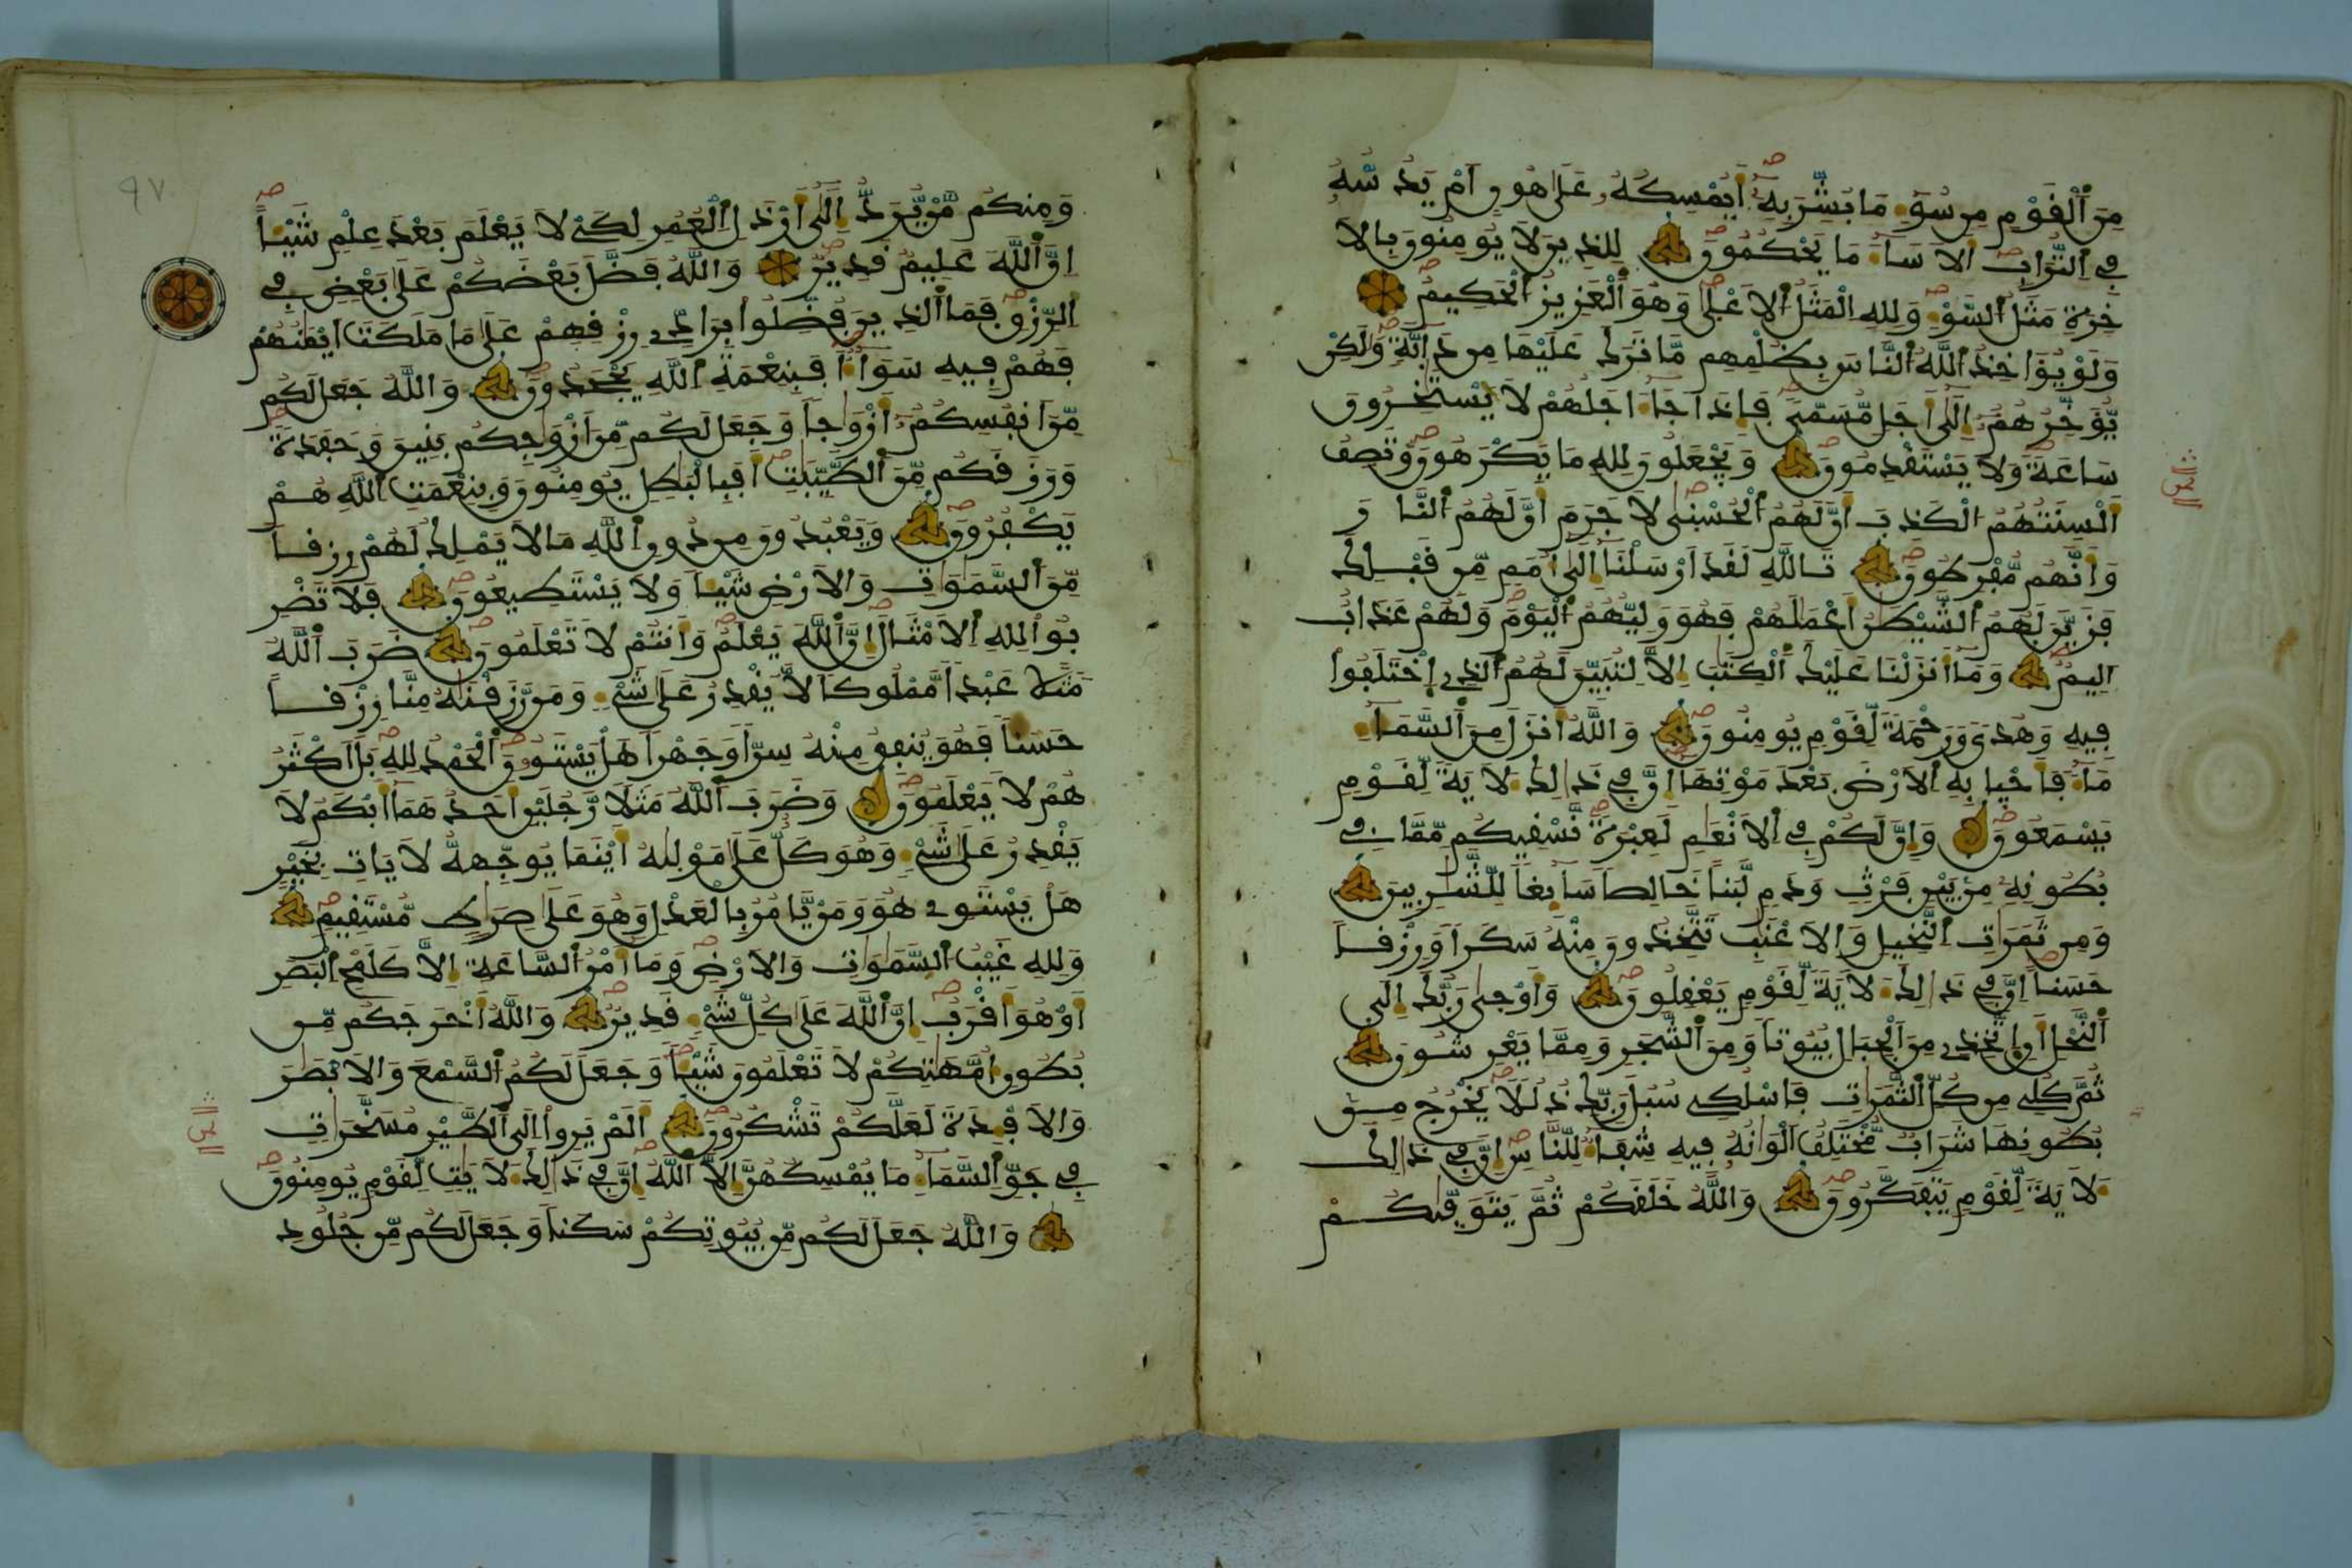 مِنَ ٱلْفَوْمِ مِن سُوٓءِ مَا بُشِّرَ بِهِۦٓ أَيُمْسِكُهُۥ عَلَىٰ هُونٍ أَمْ يَدُسُّهُۥ
فِى اِلتُّرَابِ أَلَا سَآءَ مَا يَحْكُمُونَ لِلذِينَ لَا يُومِنُونَ بِالَا
خِرَةِ مَثَلُ اُلسَّوْءِ وَلِلهِ اِلْمَثَلُ اُلَاعْلَىٰ وَهُوَ اَلْعَزِيزُ اُلْحَكِيمُ
وَلَوْ يُوَاخِذُ اُللَّهُ اُلنَّاسَ بِظُلْمِهِم مَّا تَرَكَ عَلَيْهَا مِن دَآبَّةٖ وَلَٰكِنْ
يُّوَخِّرُهُمُۥٓ إِلَىٰٓ أَجَلٖ مُّسَمّٗى فَإِذَا جَآءَ اجَلُهُمْ لَا يَسْتَٰخِرُونَ
سَاعَةٗ وَلَا يَسْتَقْدِمُونَ وَيَجْعَلُونَ لِلهِ مَا يَكْرَهُونَ وَتَصِفُ
أَلْسِنَتُهُمُ اُلْكَذِبَ أَنَّ لَهُمُ اُلْحُسْنَىٰ لَا جَرَمَ أَنَّ لَهُمُ اُلنَّارَ
وَأَنَّهُم مُّفْرِطُونَ تَاللَّهِ لَقَدَ اَرْسَلْنَآ إِلَىٰٓ أُمَمٖ مِّن قَبْلِكَ
فَزَيَّنَ لَهُمُ اُلشَّيْطَٰنُ أَعْمَٰلَهُمْ فَهُوَ وَلِيُّهُمُ اُلْيَوْمَ وَلَهُمْ عَذَابٌ
اَلِيمٌ وَمَآ أَنزَلْنَا عَلَيْكَ اَلْكِتَٰبَ إِلَّا لِتُبَيِّنَ لَهُمُ اُلذِى اِخْتَلَفُواْ
فِيهِ وَهُدٗى وَرَحْمَةٗ لِّقَوْمٖ يُومِنُونَ وَاللَّهُ أَنزَلَ مِنَ اَلسَّمَآءِ
مَآءٗ فَأَحْيَا بِهِ اِلَارْضَ بَعْدَ مَوْتِهَآ إِنَّ فِى ذَٰلِكَ لَأٓيَةٗ لِّقَوْمٖ
يَسْمَعُونَ وَإِنَّ لَكُمْ فِى اِلَانْعَٰمِ لَعِبْرَةٗ نَّسْقِيكُم مِّمَّا فِى
بُطُونِهِۦ مِنۢ بَيْنِ فَرْثٖ وَدَمٖ لَّبَناً خَالِصاٗ سَآئِغاٗ لِّلشَّٰرِبِينَ
وَمِن ثَمَرَٰتِ اِلنَّخِيلِ وَالَاعْنَٰبِ تَتَّخِذُونَ مِنْهُ سَكَراٗ وَرِزْقاً
حَسَناً اِنَّ فِى ذَٰلِكَ لَأٓيَةٗ لِّقَوْمٖ يَعْقِلُونَ وَأَوْحَىٰ رَبُّكَ إِلَى
اَلنَّحْلِ أَنِ اِتَّخِذِى مِنَ اَلْجِبَالِ بُيُوتاٗ وَمِنَ اَلشَّجَرِ وَمِمَّا يَعْرِشُونَ
ثُمَّ كُلِى مِن كُلِّ اِلثَّمَرَٰتِ فَاسْلُكِى سُبُلَ رَبِّكِ ذُلُلاٗ يَخْرُجُ مِنۢ
بُطُونِهَا شَرَابٌ مُّخْتَلِفٌ اَلْوَٰنُهُۥ فِيهِ شِفَآءٌ لِّلنَّاسِ إِنَّ فِى ذَٰلِكَ
لَأٓيَةٗ لِّقَوْمٖ يَتَفَكَّرُونَ وَاللَّهُ خَلَقَكُمْ ثُمَّ يَتَوَفّٰىٰكُمْ
وَمِنكُم مَّنْ يُّرَدُّ إِلَىٰٓ أَرْذَلِ اِلْعُمُرِ لِكَىْ لَا يَعْلَمَ بَعْدَ عِلْمٖ شَيْـٔاً
اِنَّ اَللَّهَ عَلِيمٌ قَدِيرٌ وَاللَّهُ فَضَّلَ بَعْضَكُمْ عَلَىٰ بَعْضٖ فِى
اِلرِّزْقِ فَمَا اَلذِينَ فُضِّلُواْ بِرَآدِّى رِزْقِهِمْ عَلَىٰ مَا مَلَكَتَ اَيْمَٰنُهُمْ
فَهُمْ فِيهِ سَوَآءٌ اَفَبِنِعْمَةِ اِللَّهِ يَجْحَدُونَ وَاللَّهُ جَعَلَ لَكُم
مِّنَ اَنفُسِكُمُۥٓ أَزْوَٰجاٗ وَجَعَلَ لَكُم مِّنَ اَزْوَٰجِكُم بَنِينَ وَحَفَدَةٗ
وَرَزَقَكُم مِّنَ اَلطَّيِّبَٰتِ أَفَبِالْبَٰطِلِ يُومِنُونَ وَبِنِعْمَتِ اِللَّهِ هُمْ
يَكْفُرُونَ وَيَعْبُدُونَ مِن دُونِ اِللَّهِ مَا لَا يَمْلِكُ لَهُمْ رِزْقاٗ
مِّنَ اَلسَّمَٰوَٰتِ وَالَارْضِ شَيْـٔاٗ وَلَا يَسْتَطِيعُونَ فَلَا تَضْرِ
بُواْ لِلهِ اِلَامْثَالَ إِنَّ اَللَّهَ يَعْلَمُ وَأَنتُمْ لَا تَعْلَمُونَ ضَرَبَ اَللَّهُ
مَثَلاً عَبْداٗ مَّمْلُوكاٗ لَّا يَقْدِرُ عَلَىٰ شَىْءٖ وَمَن رَّزَقْنَٰهُ مِنَّا رِزْقاً
حَسَناٗ فَهُوَ يُنفِقُ مِنْهُ سِرّاٗ وَجَهْراً هَلْ يَسْتَوُۥنَ اَلْحَمْدُ لِلهِ بَلَ اَكْثَرُ
هُمْ لَا يَعْلَمُونَ وَضَرَبَ اَللَّهُ مَثَلاٗ رَّجُلَيْنِ أَحَدُهُمَآ أَبْكَمُ لَا
يَقْدِرُ عَلَىٰ شَىْءٖ وَهُوَ كَلٌّ عَلَىٰ مَوْلَىٰهُ أَيْنَمَا يُوَجِّههُّ لَا يَاتِ بِخَيْرٍ
هَلْ يَسْتَوِى هُوَ وَمَنْ يَّامُرُ بِالْعَدْلِ وَهُوَ عَلَىٰ صِرَٰطٖ مُّسْتَقِيمٖ
وَلِلهِ غَيْبُ اُلسَّمَٰوَٰتِ وَالَارْضِ وَمَآ أَمْرُ اُلسَّاعَةِ إِلَّا كَلَمْحِ اِلْبَصَرِ
أَوْ هُوَ أَقْرَبُ إِنَّ اَللَّهَ عَلَىٰ كُلِّ شَىْءٖ قَدِيرٌ وَاللَّهُ أَخْرَجَكُم مِّنۢ
بُطُونِ أُمَّهَٰتِكُمْ لَا تَعْلَمُونَ شَيْـٔاٗ وَجَعَلَ لَكُمُ اُلسَّمْعَ وَالَابْصَٰرَ
وَالَافْـِٕدَةَ لَعَلَّكُمْ تَشْكُرُونَ أَلَمْ يَرَوِاْ اِلَى اَلطَّيْرِ مُسَخَّرَٰتٖ
فِى جَوِّ اِلسَّمَآءِ مَا يُمْسِكُهُنَّ إِلَّا اَللَّهُ إِنَّ فِى ذَٰلِكَ لَأٓيَٰتٖ لِّقَوْمٖ يُومِنُونَ
وَاللَّهُ جَعَلَ لَكُم مِّنۢ بُيُوتِكُمْ سَكَناٗ وَجَعَلَ لَكُم مِّن جُلُودِ